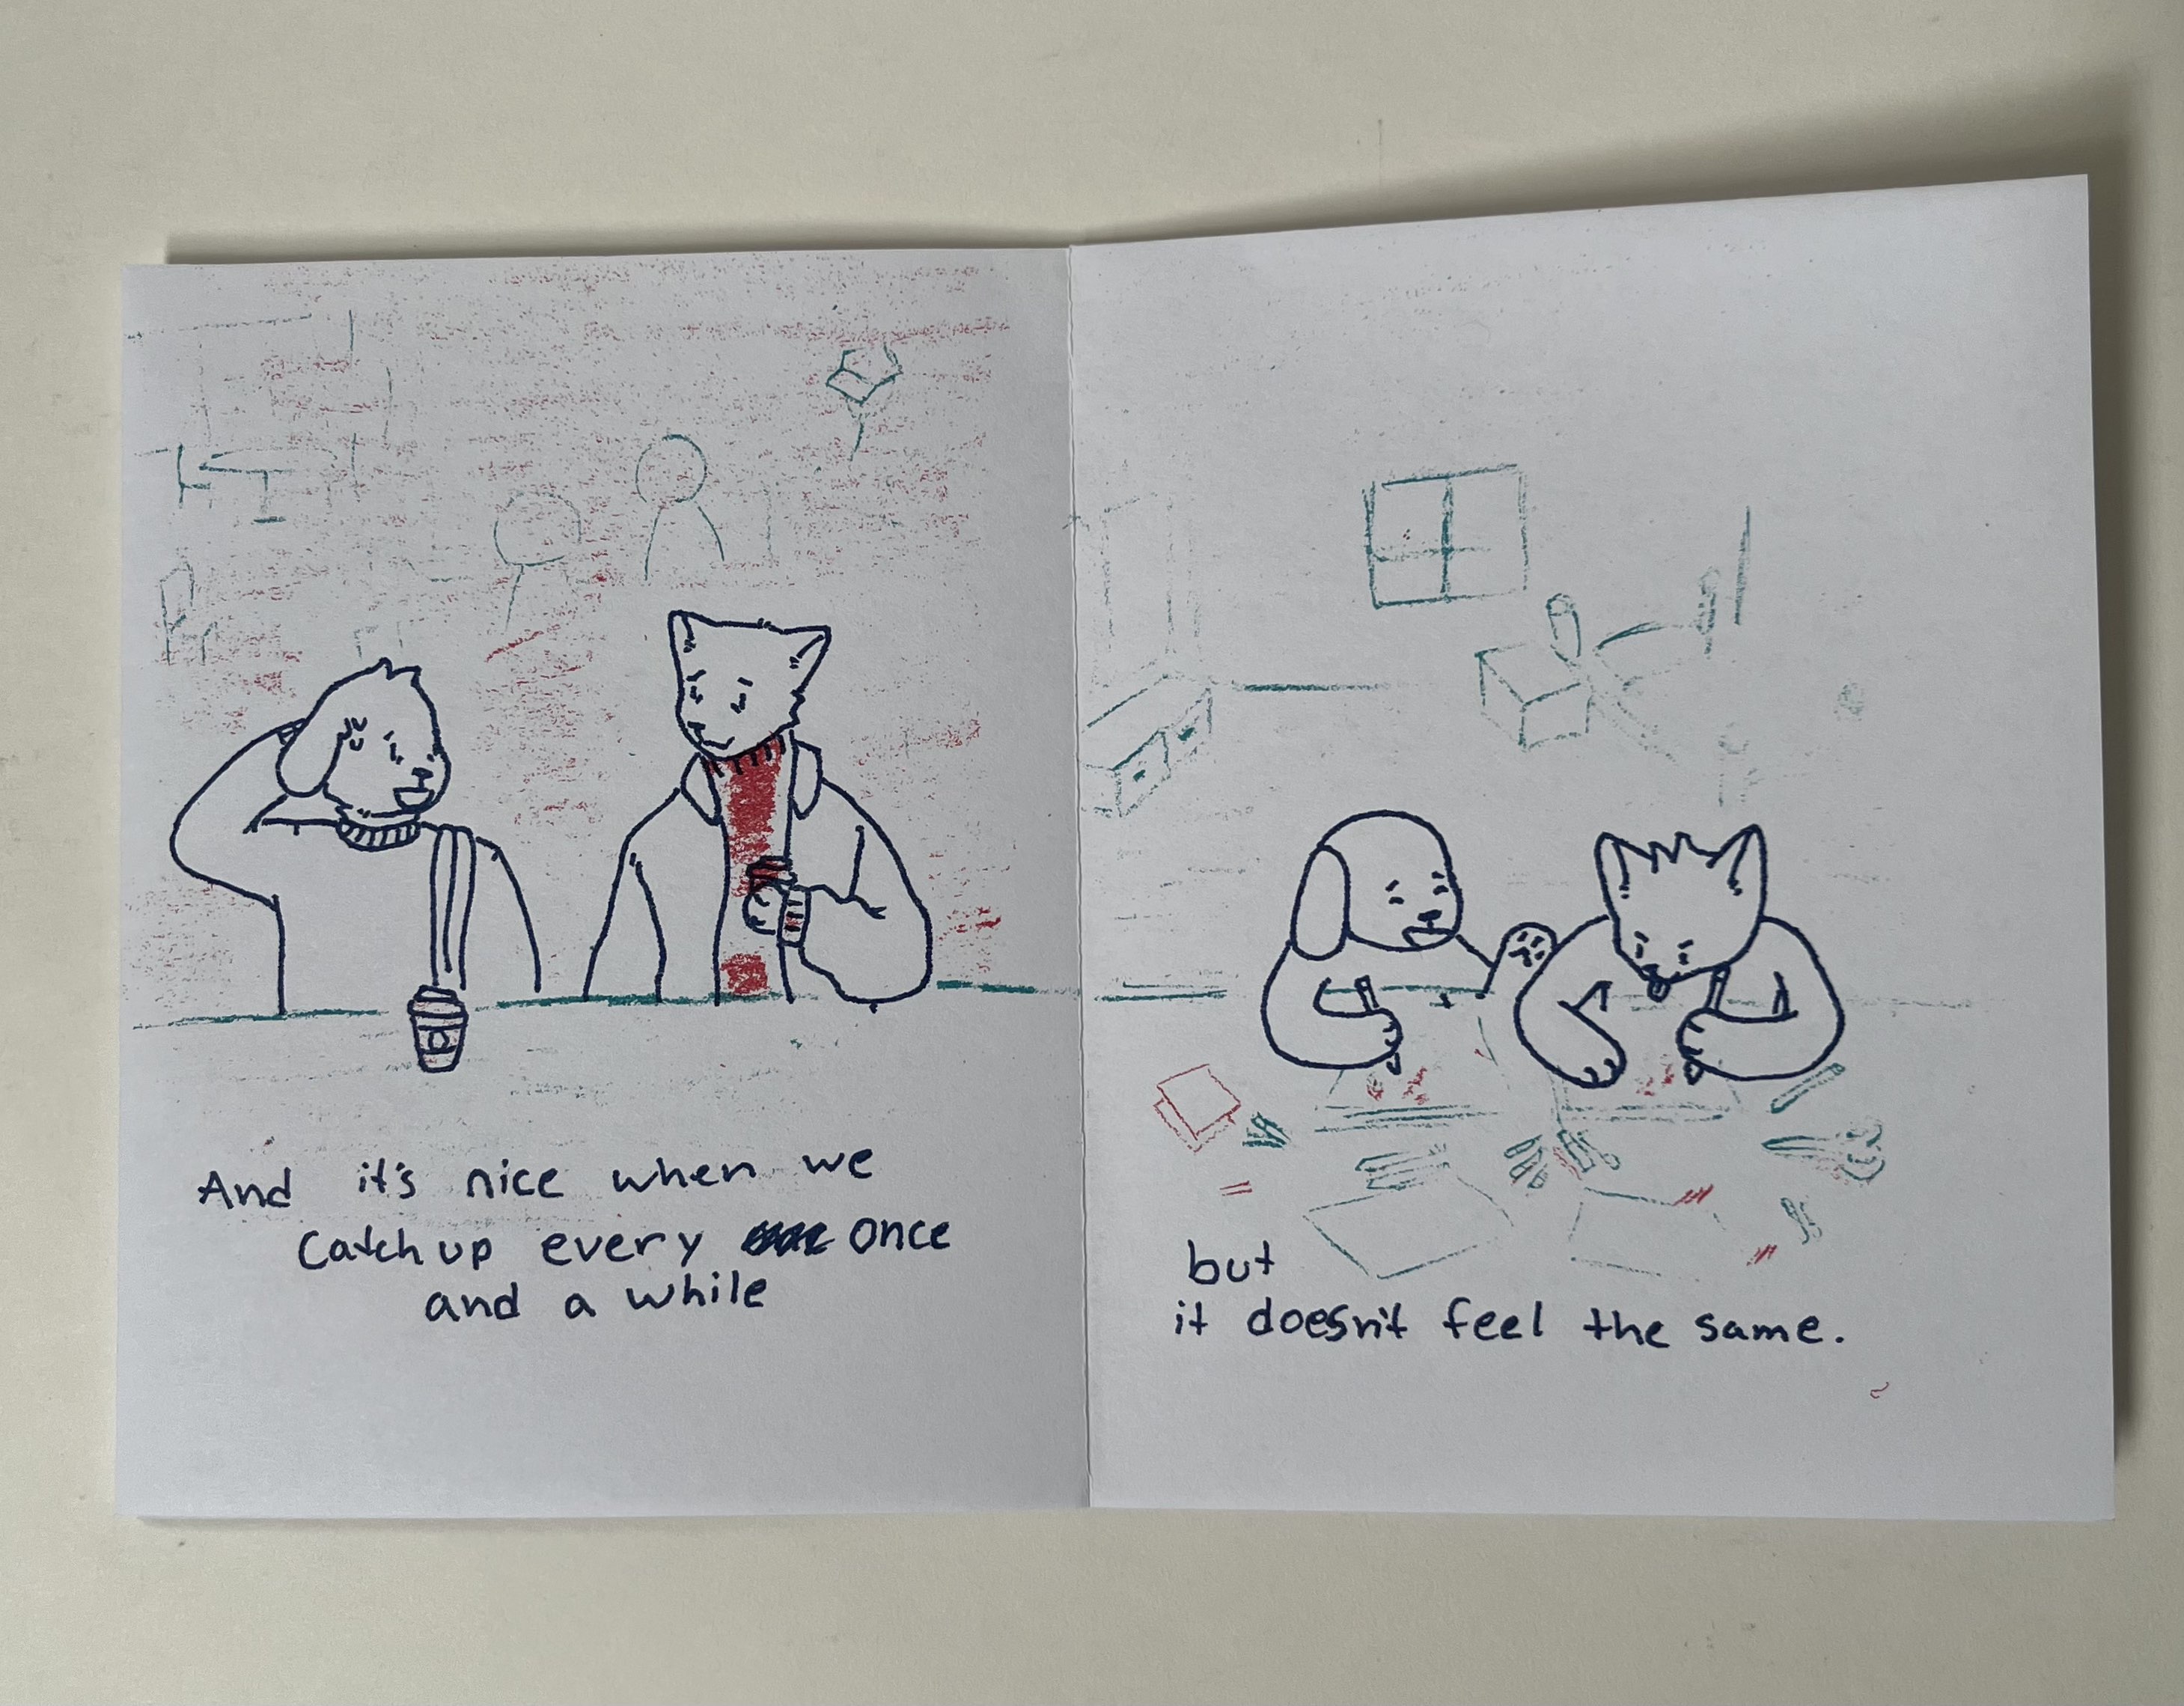 And it's nice when we
Catch up every once
and a while
but
it doesn't feel the same.